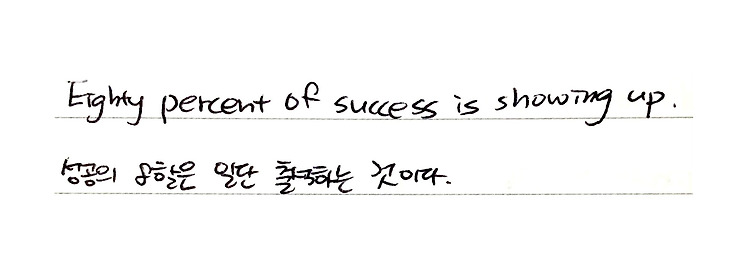 Eighty percent of success is showing up.
성공의 8할은 일단 출석하는 것이다.